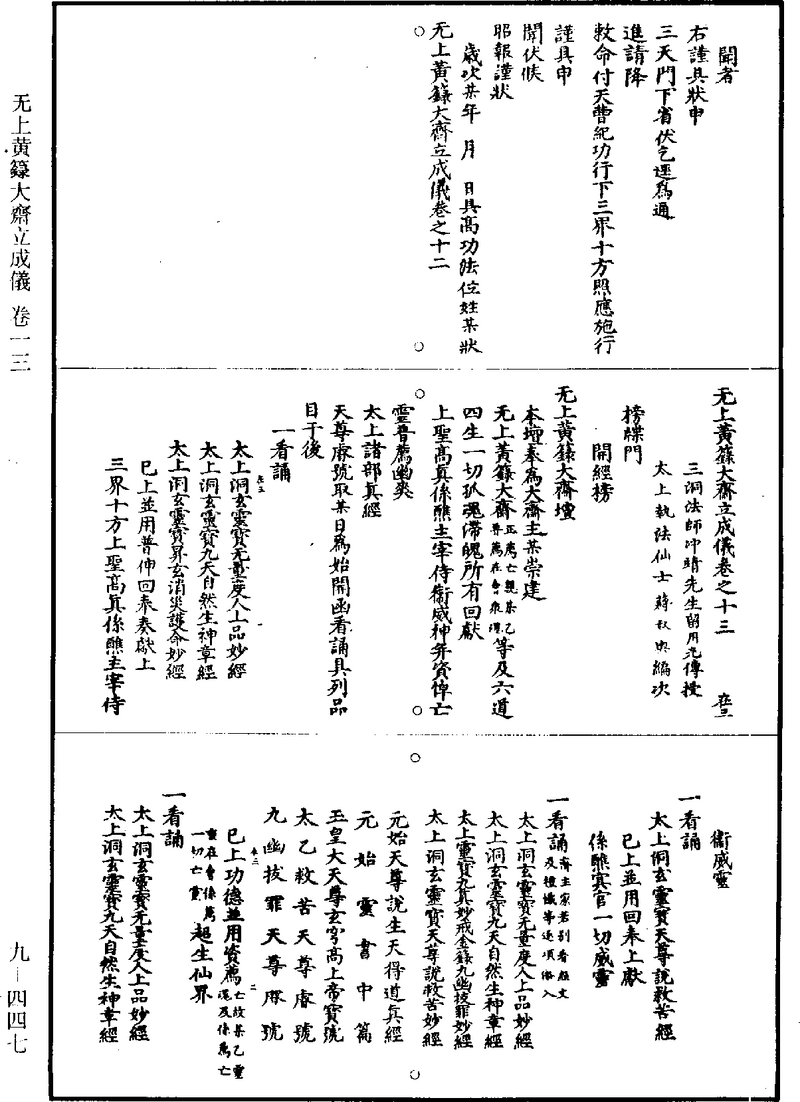 无上黄籙大齋立成儀 卷一三
九－四四七
聞者
右謹具狀申
三天門下省伏乞逕爲通
進請降
敕命付天曹紀功行下三界十方照應施行
謹具申
聞伏候
昭報謹狀
歲次某年 月 日具高功法位姓某狀
无上黃籙大齋立成儀卷之十二
无上黃籙大齋立成儀卷之十三
三洞法師冲靖先生留用光傳授
太上執法仙士蔣叔輿編次
榜牒門
開經榜
无上黃籙大齋壇
本壇奉爲大齋主某崇建
无上黃籙大齋正薦亡親某乙等及六道
四生一切孤魂滯魄所有回獻
上聖高真係醮主宰侍衞威神并資悼亡
靈普薦幽爽
太上諸部真經
天尊睿號取某日爲始開函看誦具列品
目于後
一看誦
太上洞玄靈寶无量度人上品妙經
太上洞玄靈寶九天自然生神章經
太上洞玄靈寶昇玄消災護命妙經
已上並用普伸回奉奏獻上
三界十方上聖高真係醮主宰侍
衞威靈
一看誦
太上洞玄靈寶天尊說救苦經
已上並用回奉上獻
係醮冥官一切威靈
一看誦齋主家若别看經文及禮懺等逐項俻入
太上洞玄靈寶无量度人上品妙經
太上洞玄靈寶九天自然生神章經
太上靈寶九真妙戒金籙九幽拔罪妙經
太上洞玄靈寶天尊說救苦妙經
元始天尊說生天得道真經
元始靈書中篇
玉皇大天尊玄穹高上帝寶號
太乙救苦天尊睿號
九幽拔罪天尊睿號
已上功德並用資薦亡故某乙靈魂及係薦亡靈在會係薦一切亡靈超生仙界
一看誦
太上洞玄靈寶无量度人上品妙經
太上洞玄靈寶九天自然生神章經